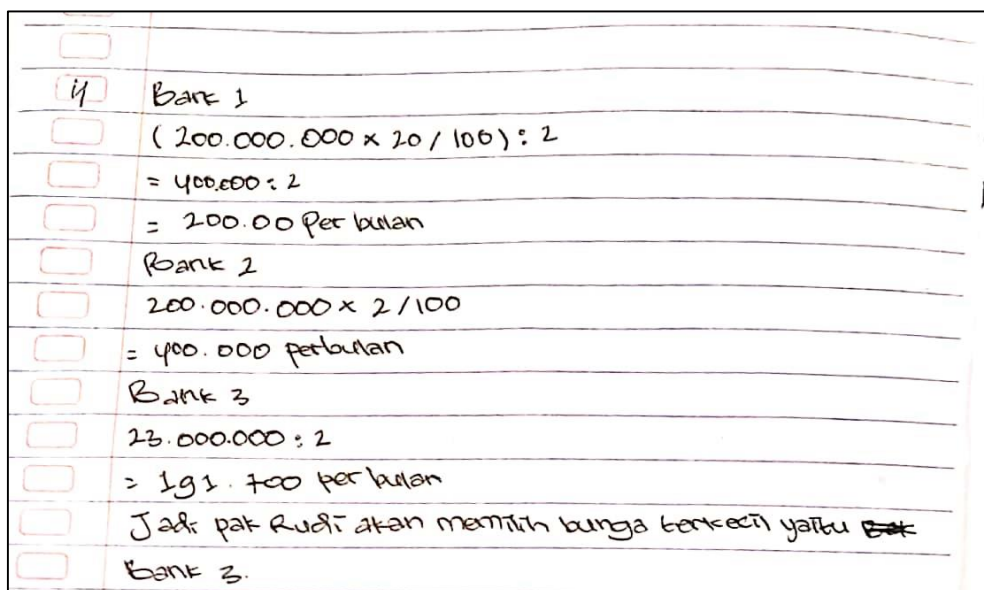 4
Bank 1
(200.000.000 x 20 / 100) : 2
= 400.000 : 2
= 200.00 Per bulan
Bank 2
200.000.000 x 2 / 100
= 400.000 perbulan
Bank 3
23.000.000 : 2
= 191.700 per bulan
Jadi pak Rudi akan memilih bunga terkecil yaitu
Bank 3.